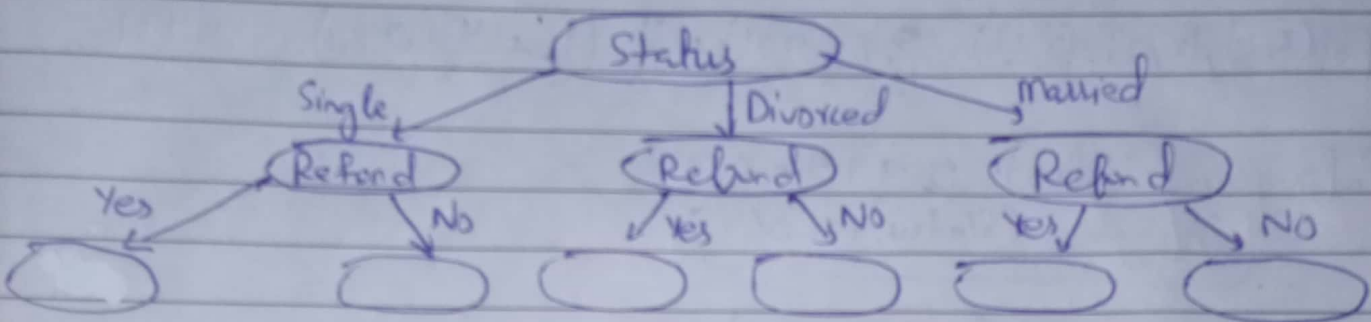 Status
Single Divorced Married
Refund Refund Refund
Yes No Yes No Yes No